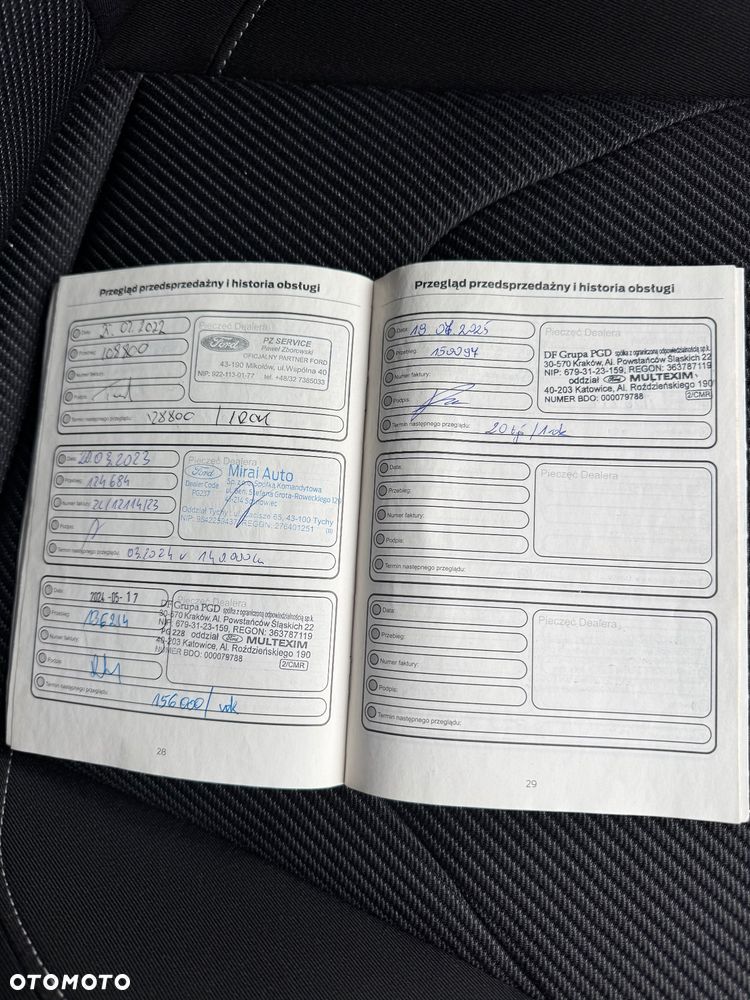 Przegląd przedsprzedażny i historia obsługi
Data: 02.2022
Pieczęć Dealera
Ford
PZ SERVICE
Paweł Zborowski
OFICJALNY PARTNER FORD
43-190 Mikołów, ul.Wspólna 40
NIP: 922-113-01-77 tel. +48/32 7385033
Przebieg: 108800
Numer faktury:
Podpis:
Termin następnego przeglądu: 128800 / 1rok
Data: 20.03.2023
Pieczęć Dealera
Ford
Dealer Code
PG237
Mirai Auto
Sp. z o.o. Spółka Komandytowa
ul. gen. Stefana Grota-Roweckiego
Sosnowiec
Oddział Tychy: 65, 43-100 Tychy
REGON: 276401251
Przebieg: 124684
Numer faktury: 12114/23
Podpis:
Termin następnego przeglądu: 03.2024
Data: 2024-05-17
Pieczęć Dealera
DF Grupa PGD spółka z ograniczoną odpowiedzialnością sp.k.
30-570 Kraków, Al. Powstańców Śląskich 22
NIP: 679-31-23-159, REGON: 363787119
PG 228 oddział Ford MULTEXIM
40-203 Katowice, Al. Roździeńskiego 190
NUMER BDO: 000079788
2/CMR
Przebieg: 136214
Numer faktury:
Podpis:
Termin następnego przeglądu: 156000/ rok
28
Przegląd przedsprzedażny i historia obsługi
Data: 2025
Pieczęć Dealera
DF Grupa PGD spółka z ograniczoną odpowiedzialnością sp.k.
30-570 Kraków, Al. Powstańców Śląskich 22
NIP: 679-31-23-159, REGON: 363787119
oddział Ford MULTEXIM
40-203 Katowice, Al. Roździeńskiego 190
NUMER BDO: 000079788
2/CMR
Przebieg: 150094
Numer faktury:
Podpis:
Termin następnego przeglądu: 20 /1rok
Data:
Pieczęć Dealera
Przebieg:
Numer faktury:
Podpis:
Termin następnego przeglądu:
Data:
Pieczęć Dealera
Przebieg:
Numer faktury:
Podpis:
Termin następnego przeglądu:
29
OTOMOTO